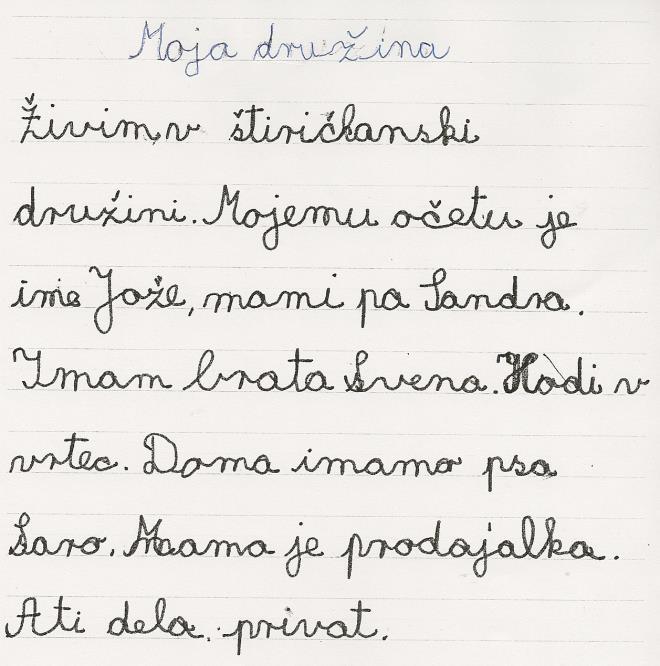 Moja družina
Živim v štiričlanski
družini. Mojemu očetu je
ime Jože, mami pa Sandra.
Imam brata Svena. Hodi v
vrtec. Doma imamo psa
Saro. Mama je prodajalka.
Ati dela privat.